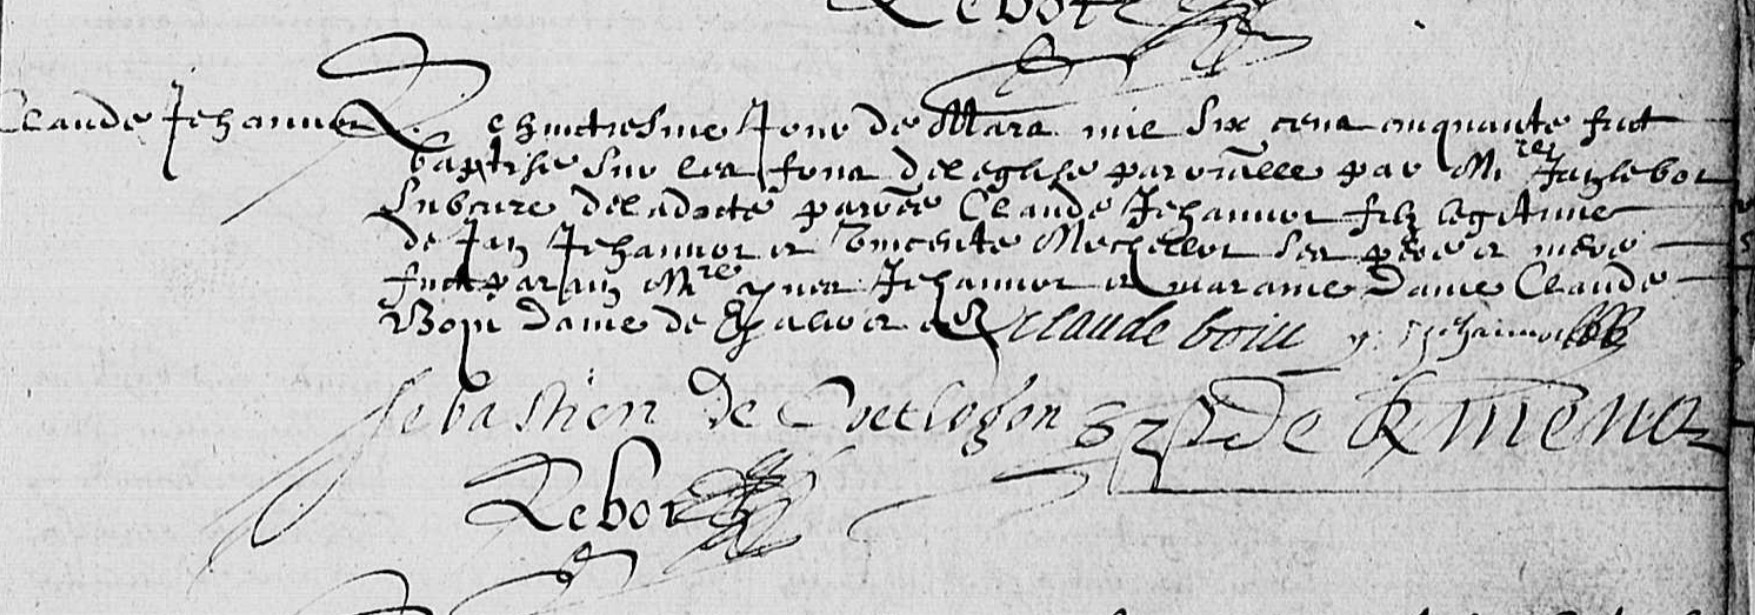 Lebore
Claude Jehannot
Le huictiesme Jour de Mars mil six cens cinquante fuct
baptisé sur les fons de leglise parroialle par Mre Jan lebot
Subcure de ladicte paroësse Claude Jehannot filz legitime
de Jan Jehannot et Vincente Mechellot ses pere et mere
fuct parain Mre yves Jehannot et maraine Dame Claude
Boju dame de claude boiu y: Jehannot
Sebastien De Coetlogon De Kmeno
Lebot